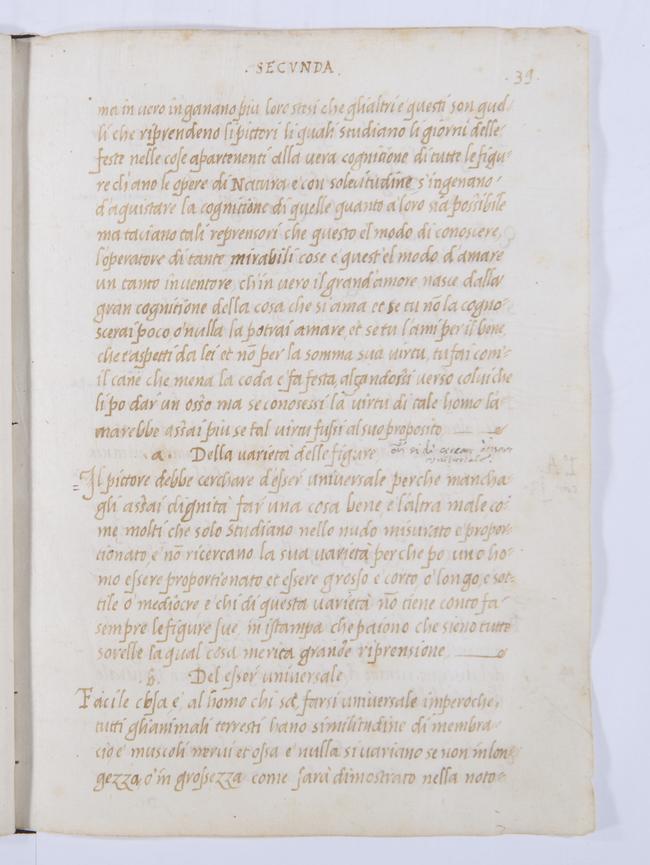 . SECVNDA.
. 39 .
ma in uero inganano piu loro stesi che glialtri e questi son quel-
li che riprendeno li pittori li quali studiano li giorni delle
feste nelle cose apartenenti alla uera cognitione di tutte le figu-
re ch'ano le opere di Natura e con solecitudine s'ingenano
d'aquistare la cognitione di quelle quanto a' loro sia possibile
ma taciano tali reprensori che questo el modo di conoscere,
l'operatore di tante mirabili cose e quest'el modo d'amare
un tanto inuentore, ch'in uero il grand'amore nasce dalla
gran cognitione della cosa che si ama et se tu nõ la cogno-
scerai poco, o' nulla la potrai amare, et se tu l'ami per il bene
che t'aspetti da lei et nõ per la somma sua uirtu, tu fai com'-
il cane che mena la coda e fa festa, alzandossi uerso colui che
li po dar un osso ma se conosessi la uirtu di tale homo la
marebbe assai piu se tal uirtu fussi al suo proposito
a. Della uarieta delle figure
Il pittore debbe cerchare d'esser uniuersale perche mancha
gli assai dignita far una cosa bene, e l'altra male co-
me molti che solo studiano nello nudo misurato e propor-
tionato, e nõ ricercano la sua uarieta perche po uno ho-
mo essere proportionato et essere grosso e corto, o' longo, e sot-
tile o' mediocre e chi di questa uarieta nõ tiene conto fa
sempre le figure sue, in istampa che paiono che sieno tutte
sorelle la qual cosa merita grande riprensione,
Del esser uniuersale
Facile cosa e, al homo chi sa, farsi uniuersale imperoche,
tutti glianimali terresti hano similitudine di membra-
cioe muscoli nerui et ossa e nulla si uariano se non in lon-
gezza, o' in grossezza come sara dimostrato nella noto-